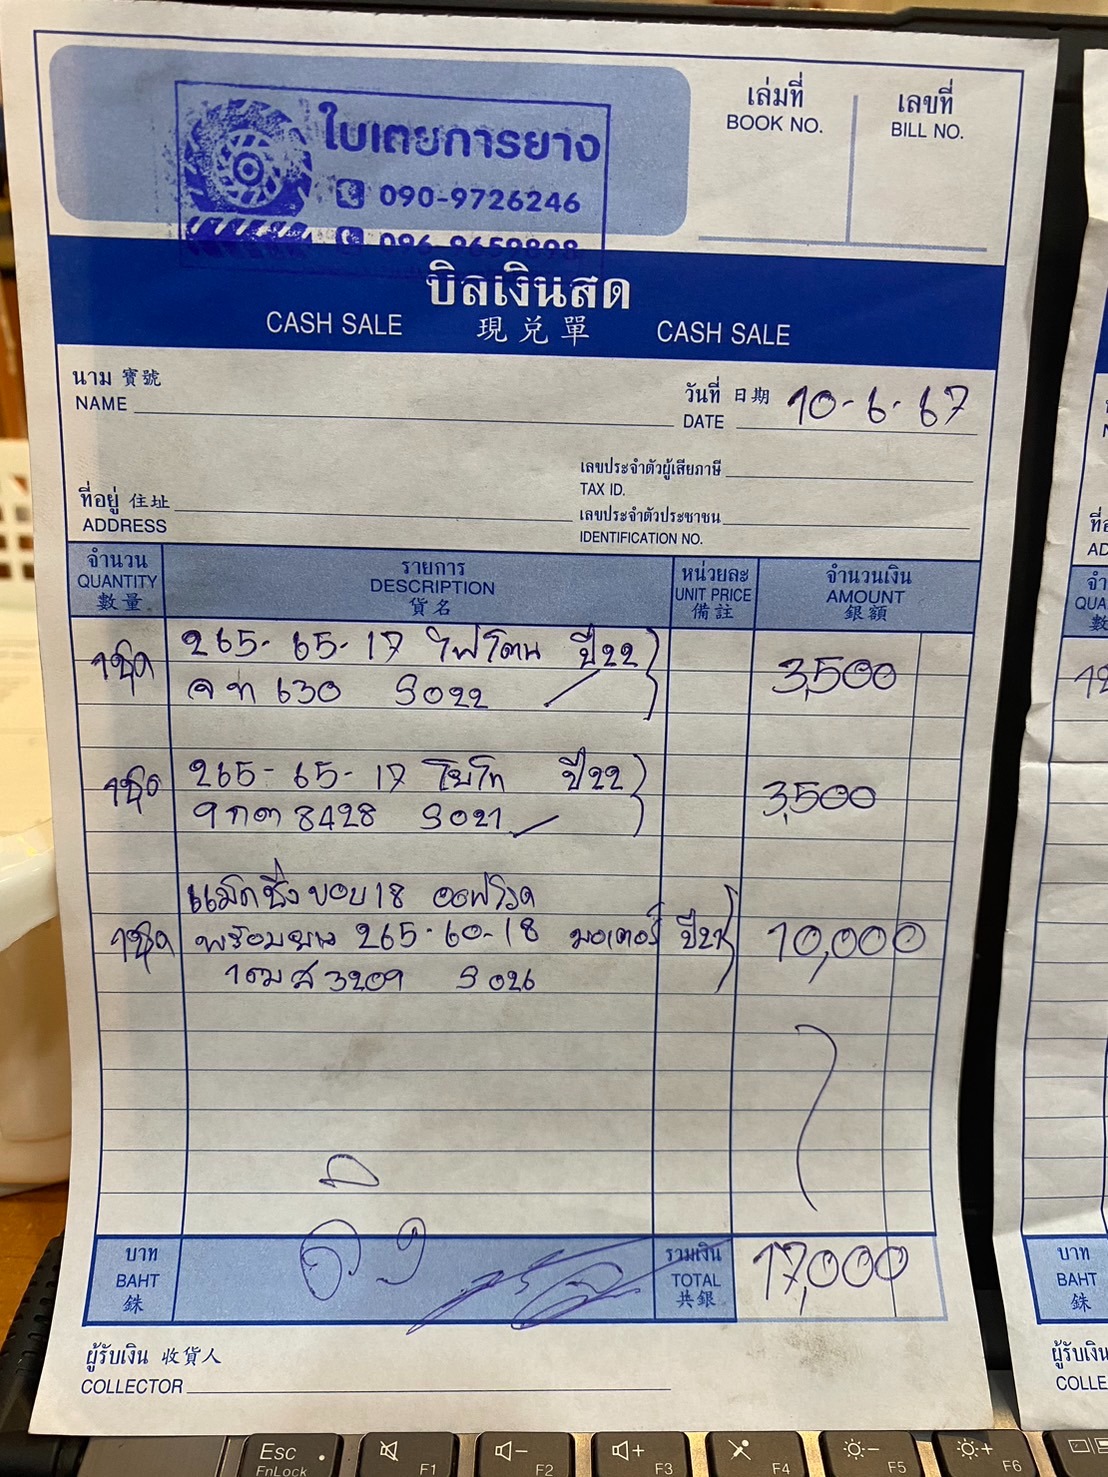 ใบเตยการยาง
090-9726246
096-9659898
เล่มที่ เลขที่
BOOK NO. BILL NO.
บิลเงินสด
CASH SALE 現兌單 CASH SALE
นาม 寶號
NAME
วันที่ 日期 10-6-67
DATE
เลขประจำตัวผู้เสียภาษี
TAX ID.
ที่อยู่ 住址
ADDRESS
เลขประจำตัวประชาชน
IDENTIFICATION NO.
จำนวน รายการ หน่วยละ จำนวนเงิน
QUANTITY DESCRIPTION UNIT PRICE AMOUNT
數量 貨名 備註 銀額
1ชุด 265-65-17 ไฟโตน ปี22 3,500
630 ร022
1ชุด 265-65-17 โยโก ปี22 3,500
9กต 8428 ร021
แม็กซิ่งขอบ18 ออฟโรด
1ชุด พร้อมยาง 265-60-18 มอเตอร์ ปี22 10,000
1ฒส 3209 ร026
บาท รวมเงิน
BAHT TOTAL 17,000
銖 共銀
ผู้รับเงิน 收貨人
COLLECTOR
ที่อ
AD
จำ
QUA
數
บาท
BAHT
銖
ผู้รับเงิน
COLLE
Esc
FnLock
F1
F2
F3
F4
F5
F6